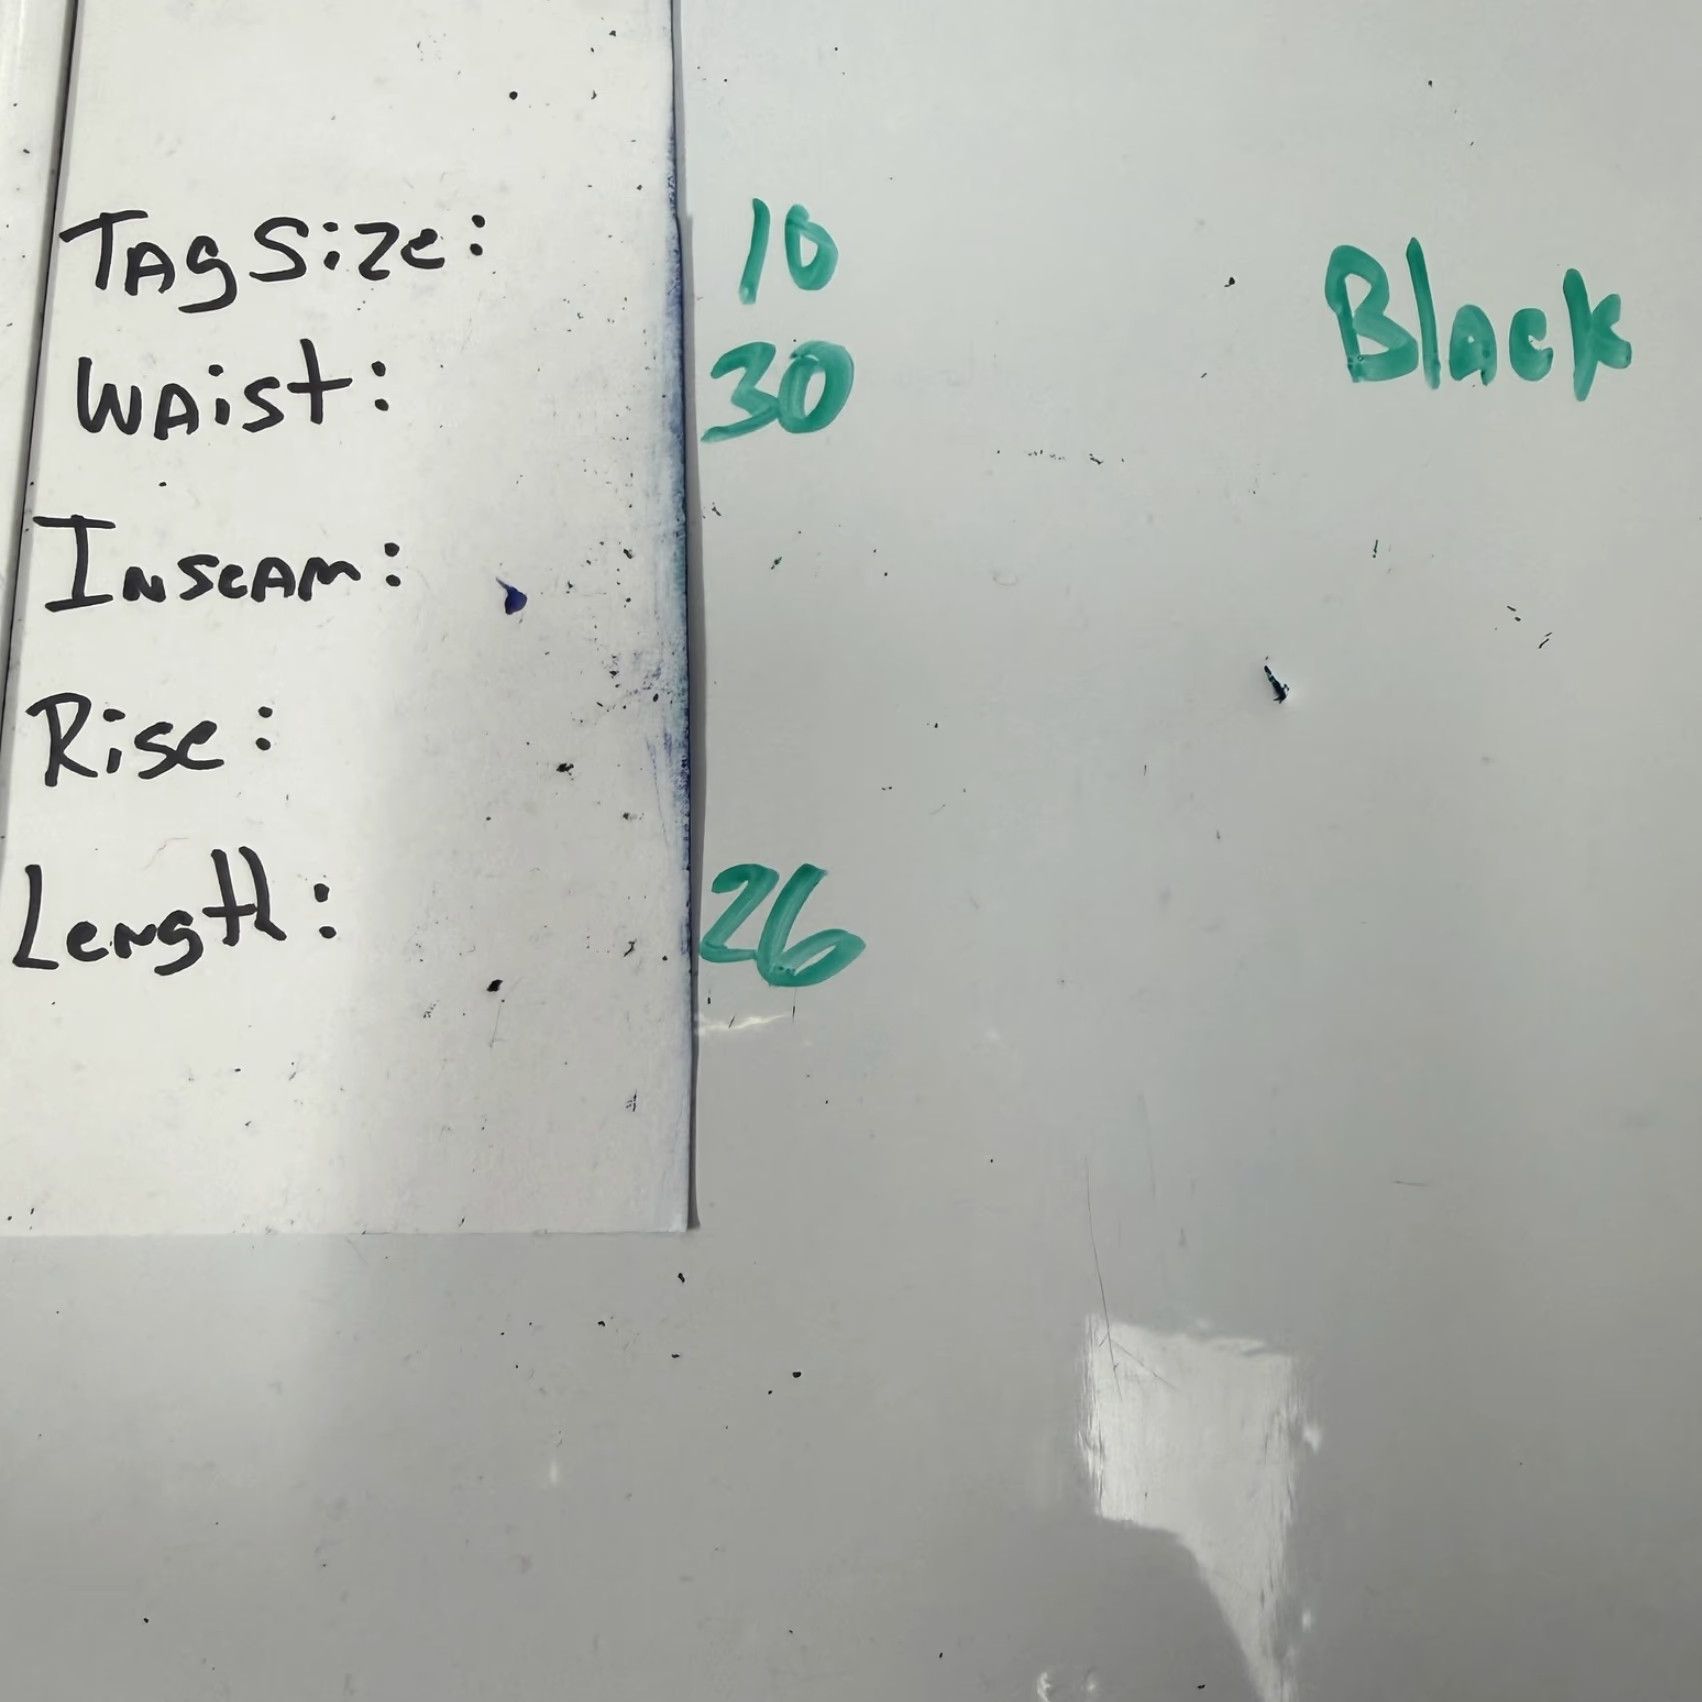 Tag Size: 10
Waist: 30
Black
Inseam:
Rise:
Length: 26